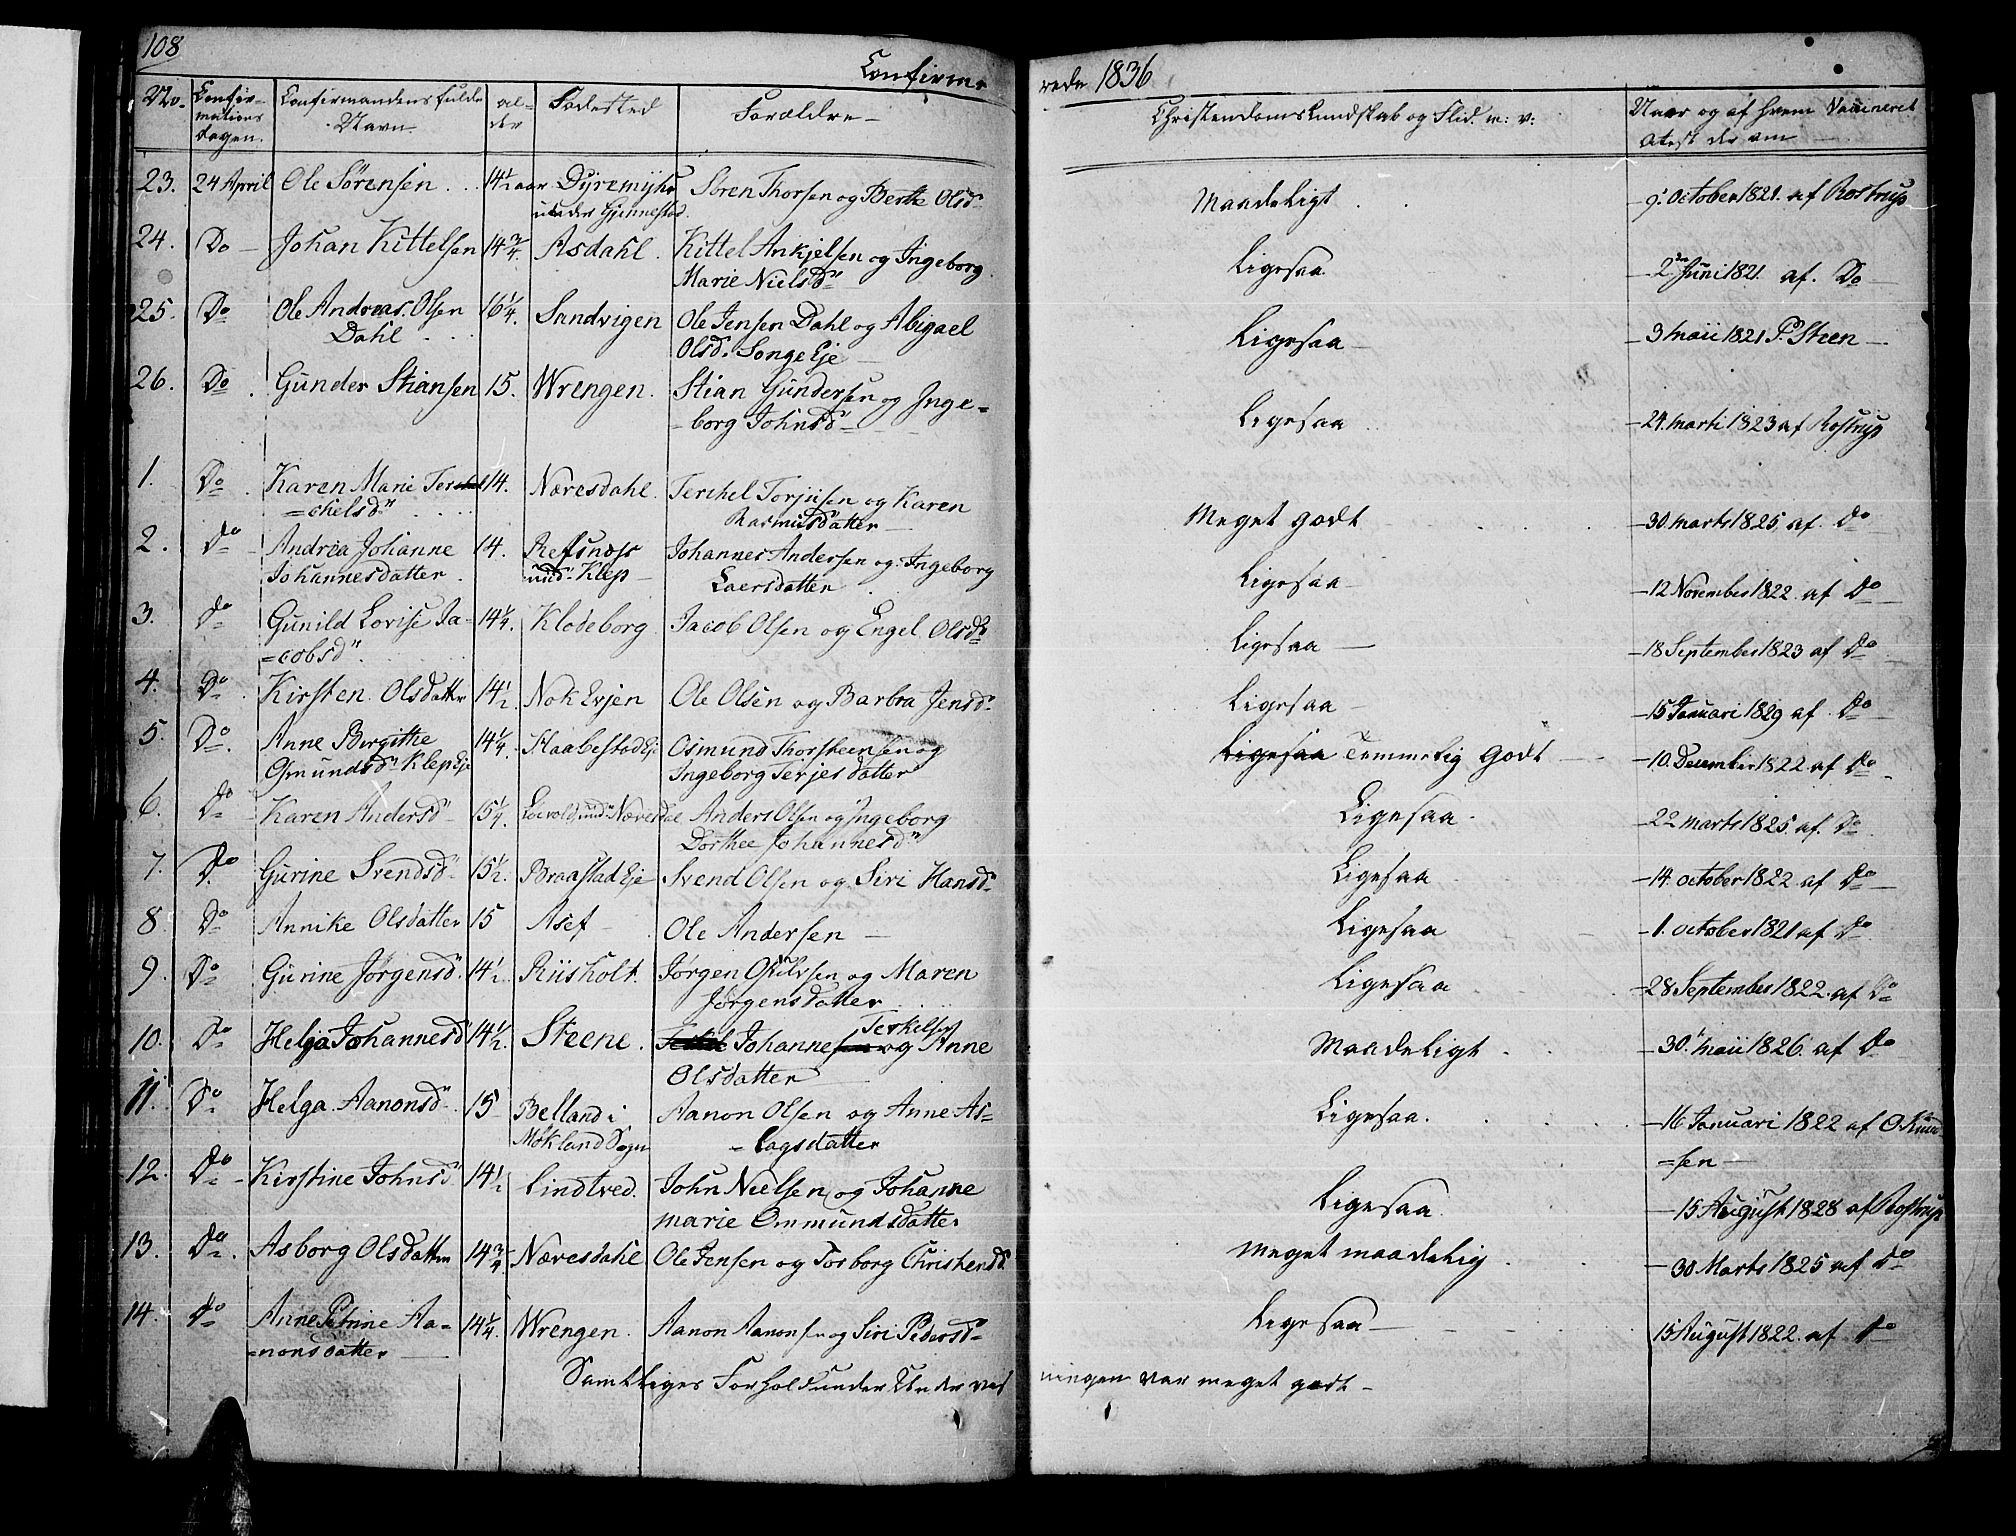 108
Confirme-
rede 1836
No. Confir- mations dagen. Confirmandens fulde Navn al- der Fødested Forældre Christendoms Kundskab og Flid. m: v: Naar og af hvem Vaccineret Atest der om
23. 24 April Ole Sørensen 14½ aar Dyremyhr Søren Thorsen og Berthe Olsd. Maadeligt 9. October 1821. af Rostrup
under Gjennestad
24. Do Johan Kittelsen 14¾. Asdahl. Kittel Ankjelsen og Ingeborg Ligesaa 2 Juni 1821. af. Do
Marie Nielsd"
25. Do Ole Andreas. Olsen 16¼. Sandvigen Ole Jensen Dahl og Abigael Ligesaa 3 Maii 1821 P. Steen
Dahl Olsd. Songe Eje
26. Do Gunder Stiansen 15. Wrengen. Stian Gundersen og Inge= Ligesaa 24. marti 1823 af Rostrup
=borg Johnsd"
1. Do Karen Marie Ter 14. Næresdahl. Terchel Torjusen og Karen Meget godt 30. marts 1825. af. Do
=chelsd" Rasmusdatter
2. Do Andrea Johanne 14. Refsnæs Johannes Andersen og Ingeborg Ligesaa 12 November 1822. af Do
Johannesdatter und. Klep Laersdatter
3. Do Gunild Lovise Ja- 14¼. Klodeborg Jacob Olsen og Engel Olsd Ligesaa 18 September 1823 af Do
=cobsd"
4. Do Kirsten. Olsdatter 14½ Nok Evjen Ole Olsen og Barbra Jensd. Ligesaa 15 Januari 1829 af. Do
5 Do. Anne Bergithe 14¼ Staabestad Ej Osmund Thorsteensen og Ligesaa Temmelig godt 10. December 1822. af Do
Osmundsd" Klep Eje Ingeborg Terjesdatter
6. Do Karen Andersd" 15¼. und" Næresdal Anders Olsen og Ingeborg Ligesaa 22 marts 1825. af. Do
Dorthee Johannesd"
7. Do Gurine Svendsd" 15½. Braastad Eje Svend Olsen og Siri Hansd" Ligesaa 14. october 1822 af Do
8. Do Annike Olsdatter 15 Asef Ole Andersen Ligesaa 1. october 1821 af Do
9. Do Gurine Jørgensd". 14½ Riisholt. Jørgen og Maren Ligesaa 28 September 1822. af Do
Jørgensdatter
10. Do Helga Johannesd" 14½. Steene. Johannes Terkelsen og Anne Maadeligt 30. maii 1826. af Do
Olsdatter
11. Do Helga. Aanonsd" 15 Belland i Aanon Olsen og Anne As- Ligesaa. 16 Januari 1822 af O Knu
Mokland Sogn =lagsdatter =sen
12. Do Kirstine Johnsd" 14½ Lindtved. John Neelsen og Johanne Ligesaa. 15 August 1828 af Rostrup
marie Ommundsdatter
13. Do. Asborg Olsdatter 14¾ Næresdahl Ole Jensen og Tosborg Christensd Meget maadelig 30 Marts 1825 af Do
14. Do Anne Petrine Aa- 14¼ Wrengen. Aanon Aanonsen og Siri Pedersd" Ligesaa 15 August 1822. af Do
=nonsdatter
Samtliges Forhold under Underviisningen var meget godt